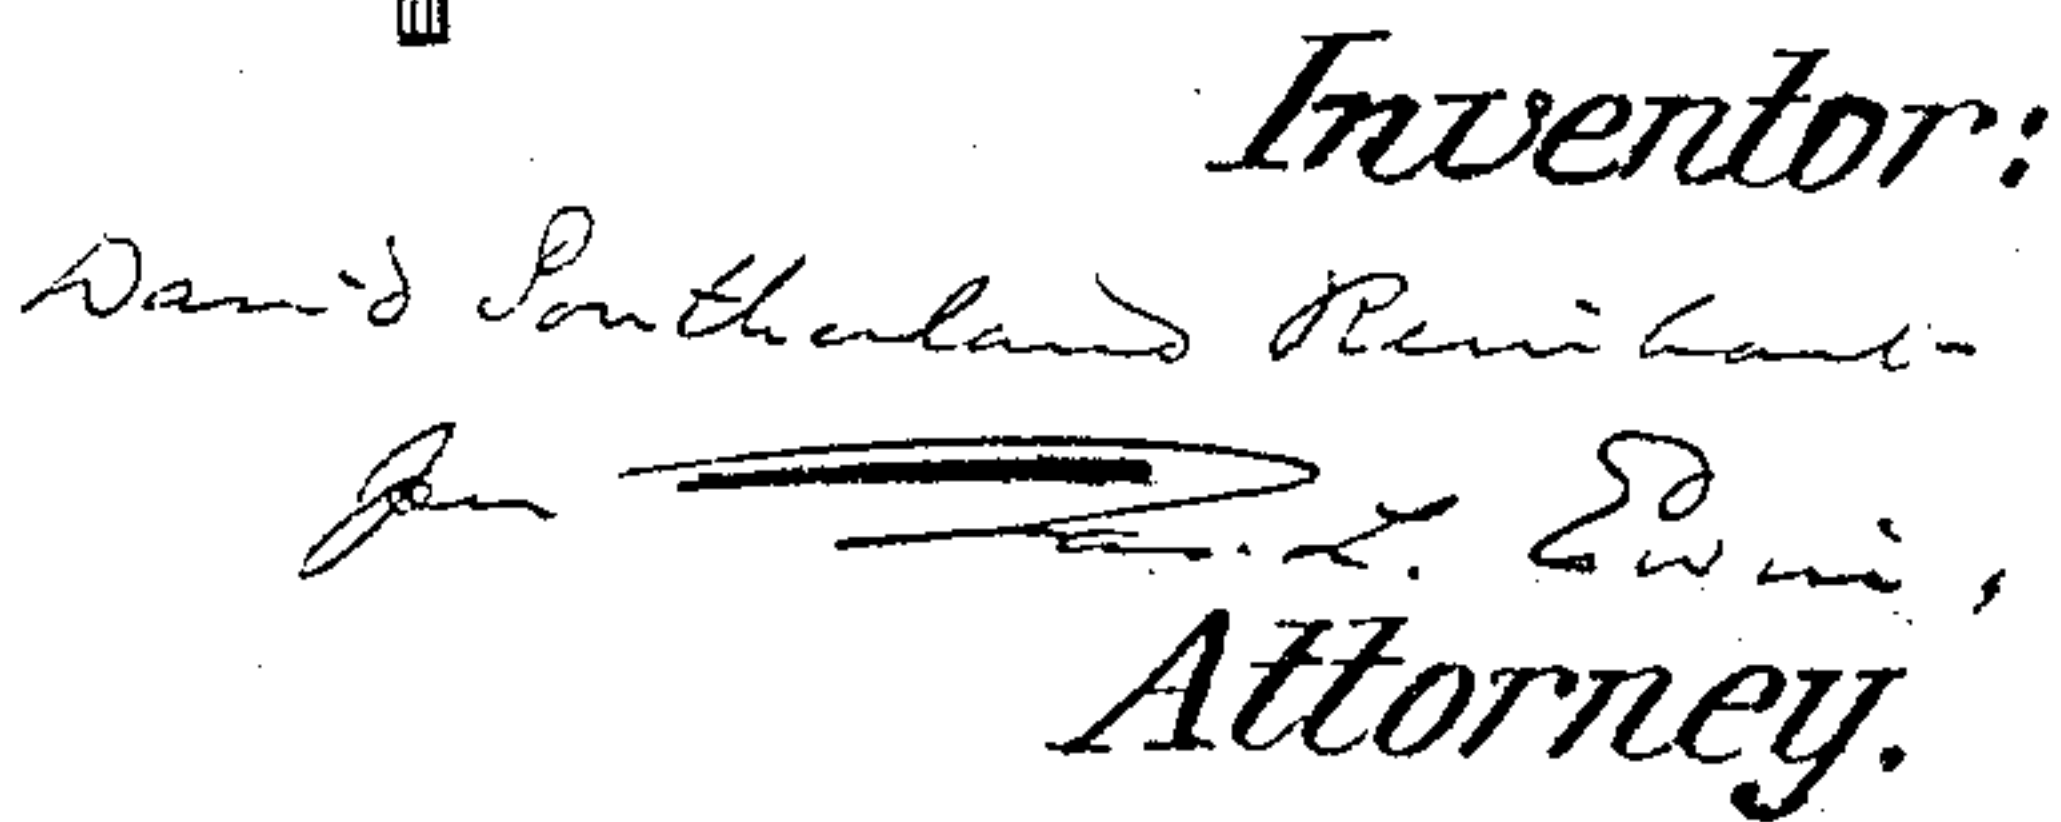 Inventor:
David Southerland Reinhart
L. Edwin,
Attorney.